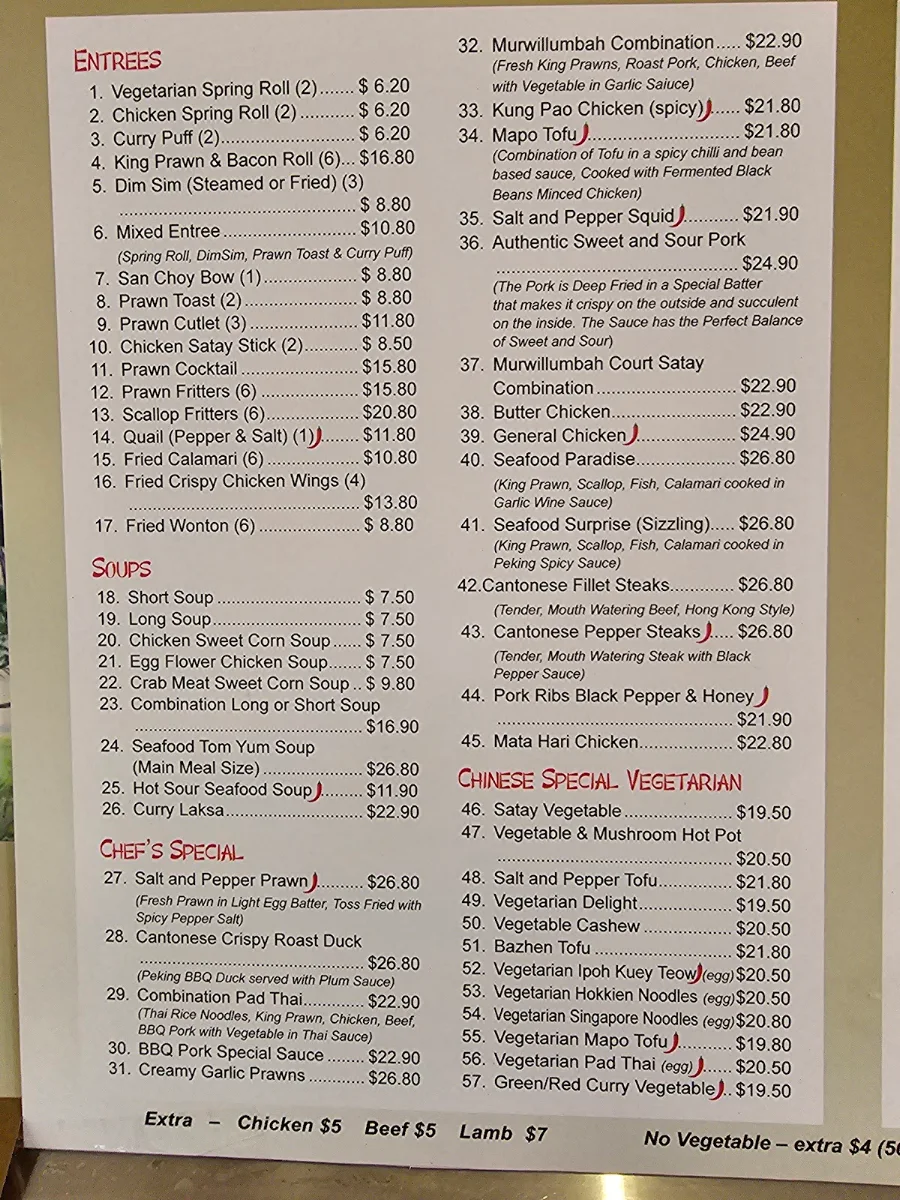 ENTREES
1. Vegetarian Spring Roll (2)....... $ 6.20
2. Chicken Spring Roll (2) ........... $ 6.20
3. Curry Puff (2)......................... $ 6.20
4. King Prawn & Bacon Roll (6)... $16.80
5. Dim Sim (Steamed or Fried) (3)
............................................ $ 8.80
6. Mixed Entree ......................... $10.80
(Spring Roll, DimSim, Prawn Toast & Curry Puff)
7. San Choy Bow (1) .................. $ 8.80
8. Prawn Toast (2) ..................... $ 8.80
9. Prawn Cutlet (3) ..................... $11.80
10. Chicken Satay Stick (2).......... $ 8.50
11. Prawn Cocktail ...................... $15.80
12. Prawn Fritters (6) .................. $15.80
13. Scallop Fritters (6).................. $20.80
14. Quail (Pepper & Salt) (1)........ $11.80
15. Fried Calamari (6) ................. $10.80
16. Fried Crispy Chicken Wings (4)
............................................ $13.80
17. Fried Wonton (6) ................... $ 8.80
SOUPS
18. Short Soup ............................ $ 7.50
19. Long Soup............................. $ 7.50
20. Chicken Sweet Corn Soup ..... $ 7.50
21. Egg Flower Chicken Soup...... $ 7.50
22. Crab Meat Sweet Corn Soup .. $ 9.80
23. Combination Long or Short Soup
............................................ $16.90
24. Seafood Tom Yum Soup
(Main Meal Size) ................... $26.80
25. Hot Sour Seafood Soup........ $11.90
26. Curry Laksa........................... $22.90
CHEF'S SPECIAL
27. Salt and Pepper Prawn.......... $26.80
(Fresh Prawn in Light Egg Batter, Toss Fried with
Spicy Pepper Salt)
28. Cantonese Crispy Roast Duck
............................................ $26.80
(Peking BBQ Duck served with Plum Sauce)
29. Combination Pad Thai............ $22.90
(Thai Rice Noodles, King Prawn, Chicken, Beef,
BBQ Pork with Vegetable in Thai Sauce)
30. BBQ Pork Special Sauce ....... $22.90
31. Creamy Garlic Prawns ........... $26.80
32. Murwillumbah Combination..... $22.90
(Fresh King Prawns, Roast Pork, Chicken, Beef
with Vegetable in Garlic Saiuce)
33. Kung Pao Chicken (spicy)...... $21.80
34. Mapo Tofu............................. $21.80
(Combination of Tofu in a spicy chilli and bean
based sauce, Cooked with Fermented Black
Beans Minced Chicken)
35. Salt and Pepper Squid........... $21.90
36. Authentic Sweet and Sour Pork
.............................................. $24.90
(The Pork is Deep Fried in a Special Batter
that makes it crispy on the outside and succulent
on the inside. The Sauce has the Perfect Balance
of Sweet and Sour)
37. Murwillumbah Court Satay
Combination ........................... $22.90
38. Butter Chicken........................ $22.90
39. General Chicken.................... $24.90
40. Seafood Paradise................... $26.80
(King Prawn, Scallop, Fish, Calamari cooked in
Garlic Wine Sauce)
41. Seafood Surprise (Sizzling)..... $26.80
(King Prawn, Scallop, Fish, Calamari cooked in
Peking Spicy Sauce)
42.Cantonese Fillet Steaks............ $26.80
(Tender, Mouth Watering Beef, Hong Kong Style)
43. Cantonese Pepper Steaks..... $26.80
(Tender, Mouth Watering Steak with Black
Pepper Sauce)
44. Pork Ribs Black Pepper & Honey
.............................................. $21.90
45. Mata Hari Chicken.................. $22.80
CHINESE SPECIAL VEGETARIAN
46. Satay Vegetable ..................... $19.50
47. Vegetable & Mushroom Hot Pot
.............................................. $20.50
48. Salt and Pepper Tofu.............. $21.80
49. Vegetarian Delight.................. $19.50
50. Vegetable Cashew ................. $20.50
51. Bazhen Tofu .......................... $21.80
52. Vegetarian Ipoh Kuey Teow (egg) $20.50
53. Vegetarian Hokkien Noodles (egg) $20.50
54. Vegetarian Singapore Noodles (egg) $20.80
55. Vegetarian Mapo Tofu........... $19.80
56. Vegetarian Pad Thai (egg)...... $20.50
57. Green/Red Curry Vegetable.. $19.50
Extra – Chicken $5 Beef $5 Lamb $7
No Vegetable – extra $4